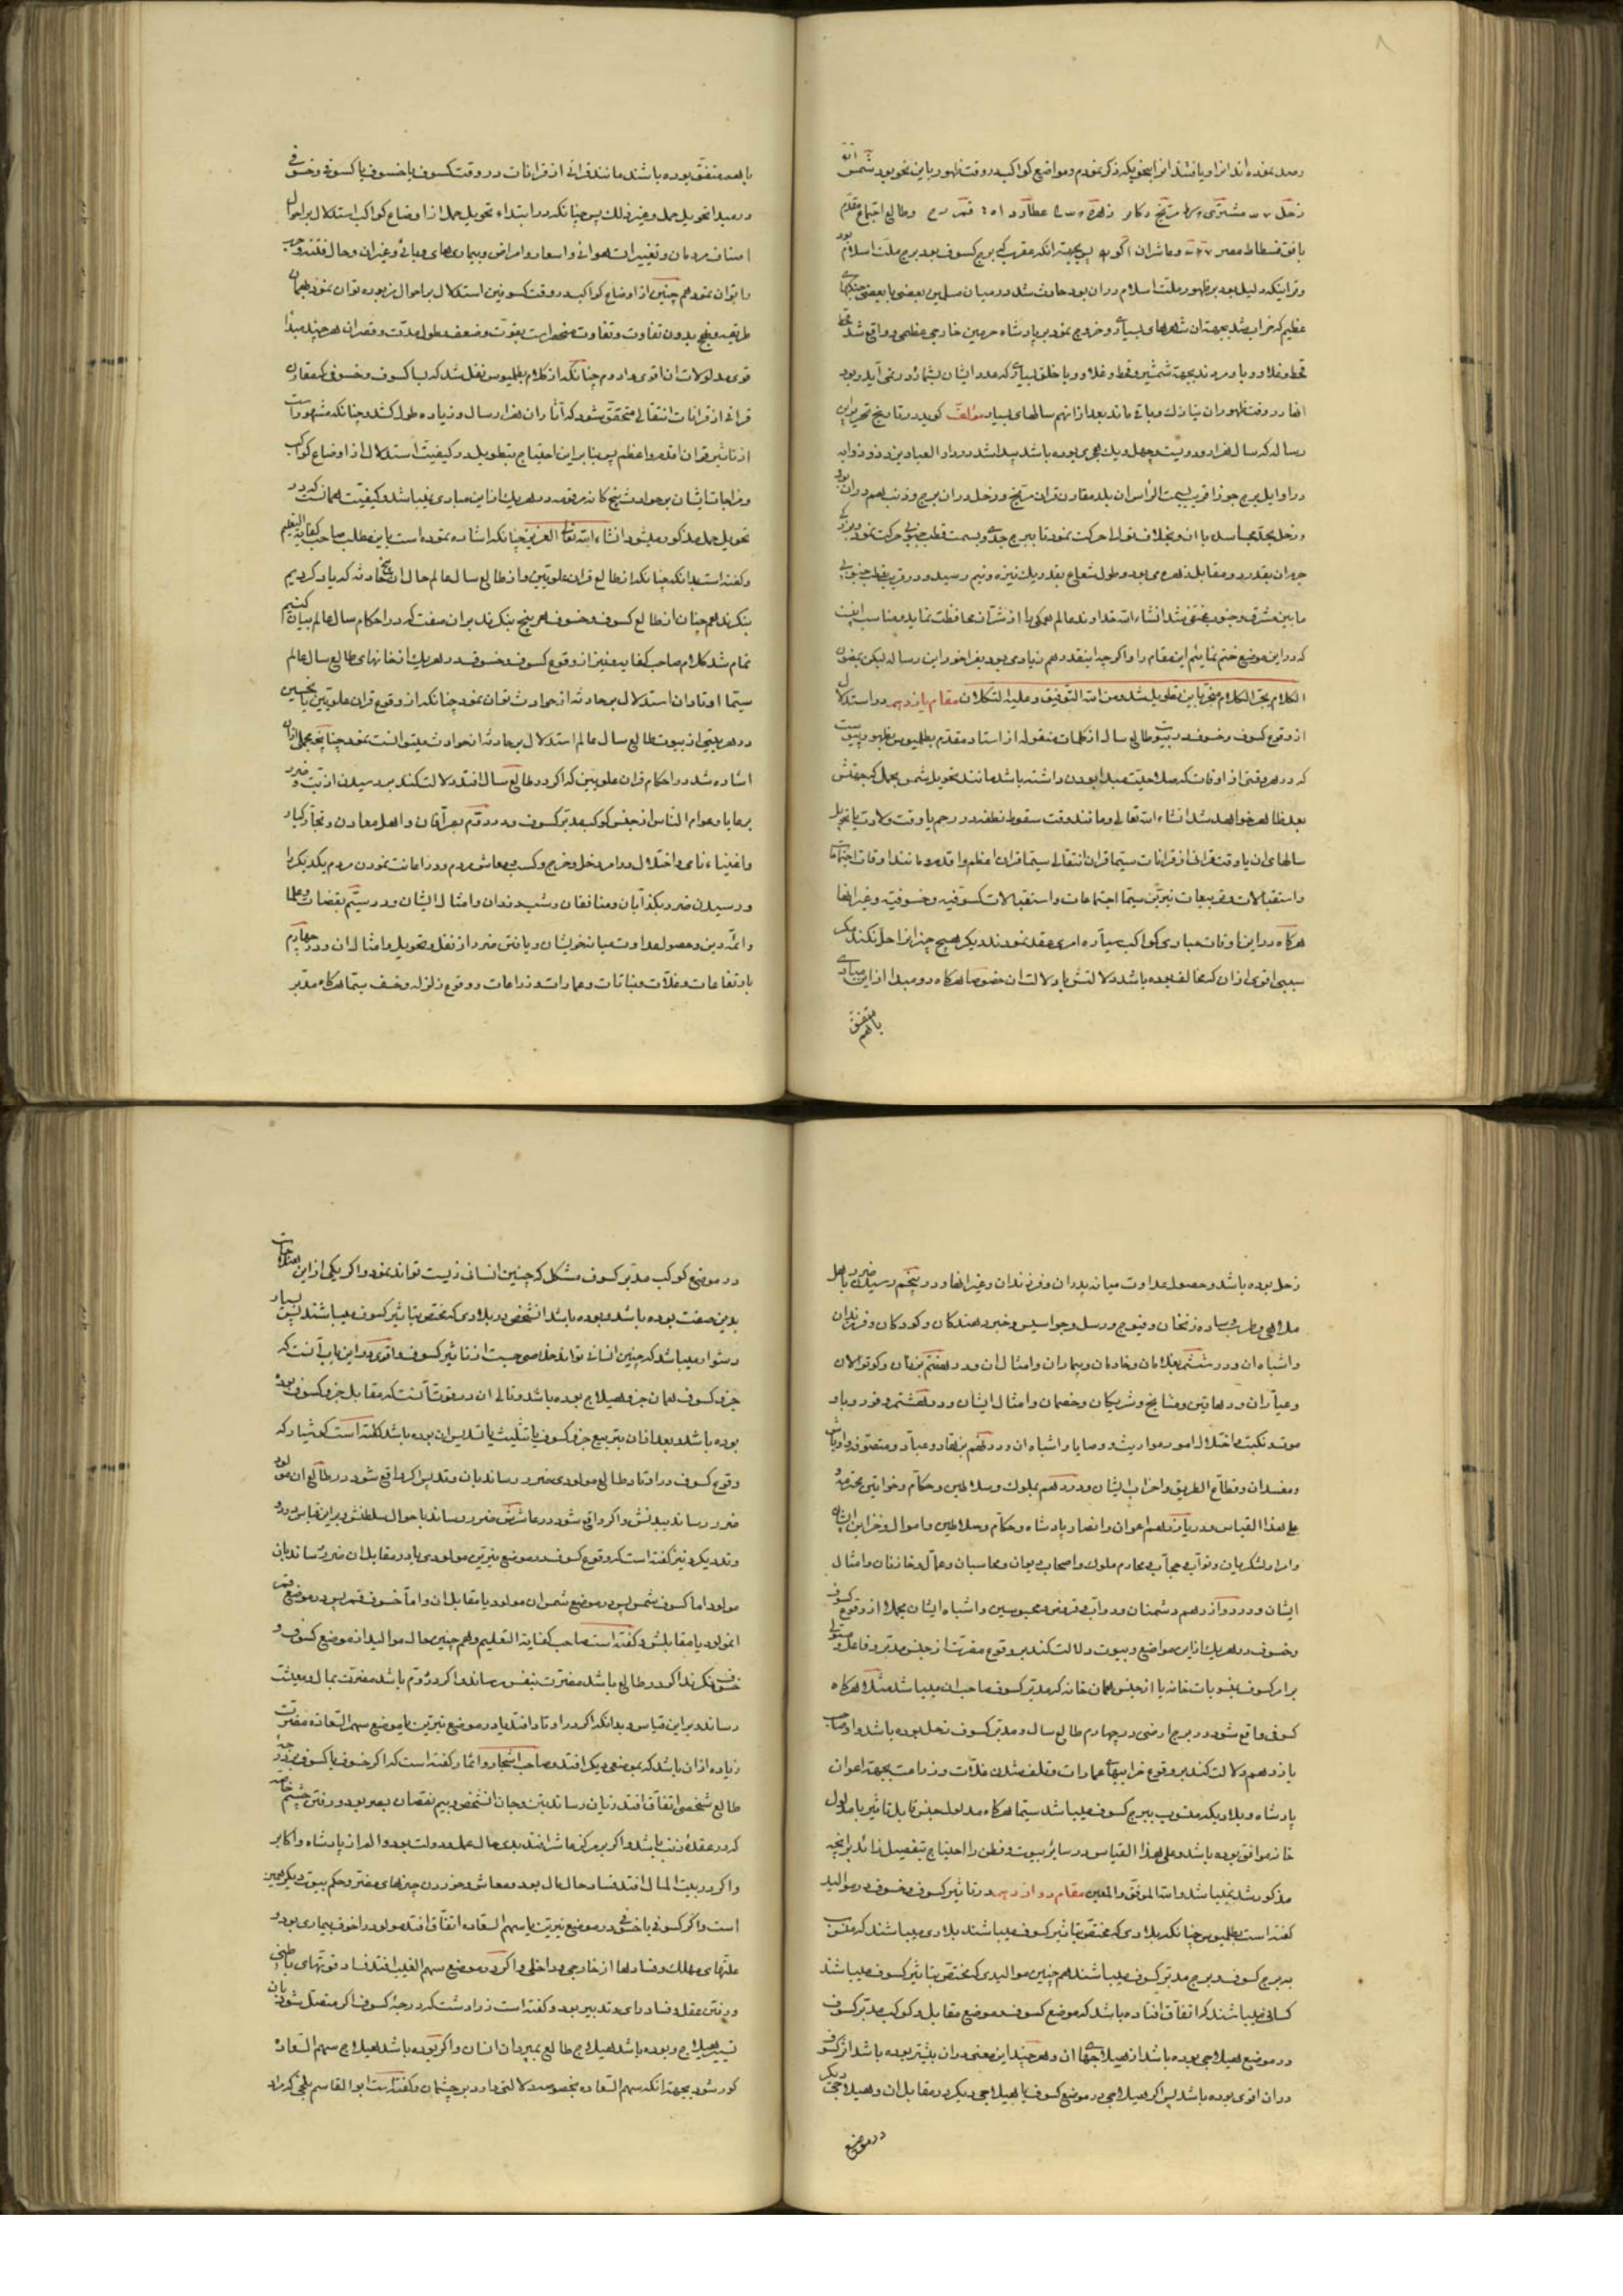 رصد نموده اند انرا و یافته اند انرا بنحویکه ذکر نمودم و مواضع کواکب در وقت ظهور باین نحو بود شمس
زحل مشتری مریخ زهره عطارد قمر و طالع اجتماع مقدم
بافق فسطاط مصر و عاشر ان بجهة انکه عقرب که برج کسوف بود برج ملت اسلام بود
و قرانیکه دلیل بود بر ظهور ملت اسلام دران بود حادث شد در میان مسلمین بعضی با بعضی جنکهای
عظیم که خراب شد بجهت ان شهرهای بسیاری و خروج نمود بر پادشاه حرمین خارجی عظیمی و واقع شد قحط
قحط و غلا و وبا و مردند بجهة شمشیر و قحط و غلا و وبا خلق بسیاری که عدد ایشان بشماره در نمی آید و بود
انها در وقت ظهور ان نیازک و باقی ماند بعد ازانهم سالهای بسیار مؤلف کوید در تاریخ تحریر این
رساله که سال هزار و دویست و چهل و یک هجری بوده باشد پیدا شد در دار العباد یزد ذو ذوابه
در اوایل برج جوزا قریب بسمت الرأس ان بلد مقارن قران مریخ و زحل دران برج و ذنب هم دران بود
ما بین مشرق و جنوب مختفی شد انشاء الله خداوند عالم همکی را از شر ان محافظت نماید و مناسب انست
که در این موضع ختم نمایئم این مقام را و اکرچه اینقدر هم زیادی بود بفراخور این رساله لیکن بمضمون
الکلام یجر الکلام منجر باین تطویل شد و من الله التوفیق و علیه التکلان مقام یازدهم در استدلال
از وقوع کسوف و خسوف در بیوت طالع سال از کلمات منقوله از استاد مقدم بطلمیوس بظهور پیوست
که در هر وقتی از اوقات که صلاحیت مبدا بودن داشته باشد مانند تحویل شمس بحمل که جهتش
بعد ظاهر خواهد شد انشاء الله تعالی و مانند وقت سقوط نطفه در رحم یا وقت ولادت یا تحویل
سالهای ان یا وقت قرانی از قرانات سیما قران انتقالی سیما قران اعظم و اقدم و مانند اوقات اجتماعات
و استقبالات و تربیعات نیرین سیما اجتماعات و استقبالات کسوفیه و خسوفیه و غیر انها
هرکاه در این اوقات مبادی کواکب سیاره امری عقد نمودند دیکر هیچ چیز انرا حل نکند مکر
سببی اقوی ازان که مخالف بوده باشد دلالتش با دلالت ان خصوصا هرکاه دو مبدا از این مبادی
متفق
باهم
باهم متفق بوده باشند مانند قرانی از قرانات در وقت کسوف یا خسوف یا کسوفی و خسوفی
در مبدا تحویل حمل و غیر ذلک پس چنانکه در ابتداء تحویل حمل از اوضاع کواکب استدلال بر احوال
اصناف مردمان و تغییرات هوائی و اسعار و امراض و بیماریهای وبائی و غیر ان و حال فتنه و حرب
را توان نمود هم چنین از اوضاع کواکب در وقت کسوفین استدلال بر احوال مزبوره توان نمود بهمان
طریقه و نهج بدون تفاوت و تفاوت منحصر است بقوت و ضعف و طول مدت و قصر ان هرچند مبدا
قوی مدلولات ان اقوی و ادوم چنانکه از کلام بطلمیوس نقل شد که بسا کسوف و خسوفی که مقارن
قرانی از قرانات انتقالی متحقق بشود که آثار ان هزار سال و زیاده طول کشد و چنانکه مشهود است
از تاثیر قران اقدم و اعظم پس بنا بر این احتیاج بتطویل در کیفیت استدلال از اوضاع کواکب
و مزاجات ایشان بر حوادث پنج کانه مرقومه در هریک از این مبادی نمیباشد و کیفیت همانست که در
تحویل حمل مذکور میشود انشاء الله تعالی العزیز چنانکه اشاره نموده است باین مطلب صاحب کفایة التعلیم
و کفته است بدانکه چنانکه از طالع قران علویین و از طالع سال عالم حال ان پنج حادثه که یاد کردیم
بنکرند هم چنان از طالع کسوف و خسوف هر پنج بنکرند بران صفت که در احکام سال عالم بیان کنیم
تمام شد کلام صاحب کفایه و نیز از وقوع کسوف و خسوف در هریک از خانهای طالع سال عالم
سیما اوتاد ان استدلال بر حادثه از حوادث توان نمود چنانکه از وقوع قران علویین یا نحسین
در هر بیتی از بیوت طالع سال عالم استدلال بر حادثه از حوادث میتوانست نمود چنانچه مجملی ازان
اشاره شد در احکام قران علویین که اکر در طالع سال افتد دلالت کند بر رسیدن اذیت و ضرر
برعایا و عوام الناس از جنس کوکب مدبر کسوف و در دوم بصرافان و اهل معادن و تجار کبار
و اغنیاء نامی و اختلال در امر دخل و خرج و کسب و معاش مردم و در اعانت نمودن مردم یکدیکر را
و رسیدن ضرر بکذابان و منافقان و شب دزدان و امثال ایشان و در سیم بقضات و علما
و ائمه دین و حصول عداوت میانه خویشان و یافتن ضرر از نقل و تحویل و امثال ان و در چهارم
بارتفاعات و غلات و نباتات و عمارات و زراعات و وقوع زلزله و خسف سیما هرکاه مدبر
زحل بوده باشد و حصول عداوت میانه پدران و فرزندان و غیر انها و در پنجم رسیدن ضرر باهل
ملاهی و طرب و ساده زنخان و فیوج و رسل و جواسیس و خبر دهندکان و کودکان و فرزندان
و اشباه ان و در ششم بغلامان و خادمان و بیماران و امثال ان و در هفتم بزنان و کوتوالان
و عیاران و دهاقین و مشایخ و شریکان و خصمان و امثال ایشان و در هشتم وفور وباء و
موت و نکبت و اختلال امور مواریث و وصایا و اشباه ان و در نهم بزهاد و عباد و متصوفه و اوباش
و مفسدان و قطاع الطریق و احزاب ایشان و در دهم بملوک و سلاطین و حکام و خواتین محترمه و
علی هذا القیاس و در یازدهم اعوان و انصار پادشاه و حکام و سلاطین و اموال و خزاین ایشان
و امراء لشکریان و نواب و حجاب و محارم ملوک و اصحاب دیوان و محاسبان و عمال و خازنان و امثال
ایشان و در دوازدهم دشمنان و دواب و قروض و محبوسین و اشباه ایشان بجملا از وقوع کسوف
و خسوف در هریک از این مواضع و بیوت دلالت کند بر وقوع مضرت از جنس مدبر و فاعل و مستولی
بر امر کسوف بمنسوبات خانه یا از جنس همان خانه که مدبر کسوف صاحب ان میباشد مثلا هرکاه
کسوفی واقع شود در برج ارضی در چهارم طالع سال و مدبر کسوف زحل بوده باشد و او صاحب
یازدهم دلالت کند بر وقوع خرابیهای عمارات و تلف شدن غلات و زراعت بجهة اعوان
پادشاه و بلاد یکه منسوب ببرج کسوف میباشد سیما هرکاه مدلول جنس قابل تاثیر با مدلول
خانه موافق بوده باشد و علی هذا القیاس در سایر بیوت و فطن را احتیاج بتفصیل زائد بر انچه
مذکور شد نمیباشد و الله الموفق و المعین مقام دوازدهم در تاثیر کسوف و خسوف در موالید
کفته است بطلمیوس چنانکه بلادی که مختص بتاثیر کسوف میباشند بلادی میباشند که منسوب
به برج کسوف و برج مدبر کسوف میباشند هم چنین موالیدی که مختص بتاثیر کسوف میباشند
کسانی میباشند که اتفاق افتاده باشد که موضع کسوف و موضع مقابل و کوکب مدبر کسوف
در موضع هیلاجی بوده باشد از هیلاجهای ان و هرچند این معنی دران بیشتر بوده باشد اثر کسوف
دران اقوی بوده باشد پس اکر هیلاجی در موضع کسوف یا هیلاجی دیکر در مقابل ان و هیلاجی دیکر
در موضع
در موضع کوکب مدبر کسوف مشکل که چنین انسانی زیست تواند نمود و اکر یکی از این هیلاجات
بدین صفت بوده باشد و بوده باشد انشخص در بلادی که مختص بتاثیر کسوف میباشند پس بسیار
دشوار میباشد که چنین انسانی تواند خلاصی جست از تاثیر کسوف و اقوی در این باب آنست که
جزو کسوف همان جزو هیلاج بوده باشد و تالی ان در قوت آنست که مقابل جزو کسوف بوده
بوده باشد و بعد ازان بتربیع جزو کسوف یا تثلیث یا تسدیس ان بوده باشد کفته است کوشیار که
وقوع کسوف در اوتاد طالع مولودی ضرر رساند بان و تدبیر اکر واقع شود در طالع ان مولود
ضرر رساند ببدنش و اکر واقع شود در عاشرش ضرر رساند باحوال سلطنتش و براین قیاس و در
وتد دیکر و نیز کفته است که وقوع کسوف در موضع نیرین مولودی یا در مقابل ان ضرر رساند بان
مولود اما کسوف شمس پس در موضع شمس ان مولود یا مقابل ان و اما خسوف قمر پس در موضع قمر
انمولود یا مقابلش و کفته است صاحب کفایة التعلیم و هم چنین حال موالید از موضع کسوف و
خسوف نکرند اکر در طالع باشد مضرت بنفس رساند و اکر در دوم باشد مضرت بمال و معیشت
رساند و براین قیاس و بدانکه اکر در اوتاد افتد یا در موضع نیرین یا موضع سهم السعاده مضرت
زیاده ازان باشد که بموضعی دیکر افتد و صاحب اشجار و اثمار کفته است که اکر خسوف یا کسوف بدرجه
طالع شخصی اتفاق افتد زیان رساند بتن و جان انشخص و بیم نقصان بصر بود و رفتن چشم خاصه
که در عقدهٔ ذنب باشد و اکر بر مرکز عاشر افتد بدی حال عمل و دولت بود و المر از پادشاه و اکابر
و اکر در بیت المال افتد فساد حال مال بود و معاش و خوردن چیزهای مضر و حکم بیوت دیکر همین
است و اکر کسوفی یا خسوفی در موضع نیرین یا سهم السعاده اتفاق افتد مولود را خوف بیماری بود و
علتهای مهلک و فسادها از خارجی و داخلی و اکر در موضع سهم الغیب افتد فساد قوتهای باطنی
و رفتن عقل و فساد رای و تدبیر بود و کفته است زرادشت که درجهٔ کسوف اکر متصل شود بان
تسییر هیلاج و بوده باشد هیلاج طالع بمیرد ان انسان و اکر بوده باشد هیلاج سهم السعاده
کور شود بجهة انکه سهم السعاده بخصوصه دلالتی دارد بر چشمان و کفته است ابو القاسم بلخی که مراد